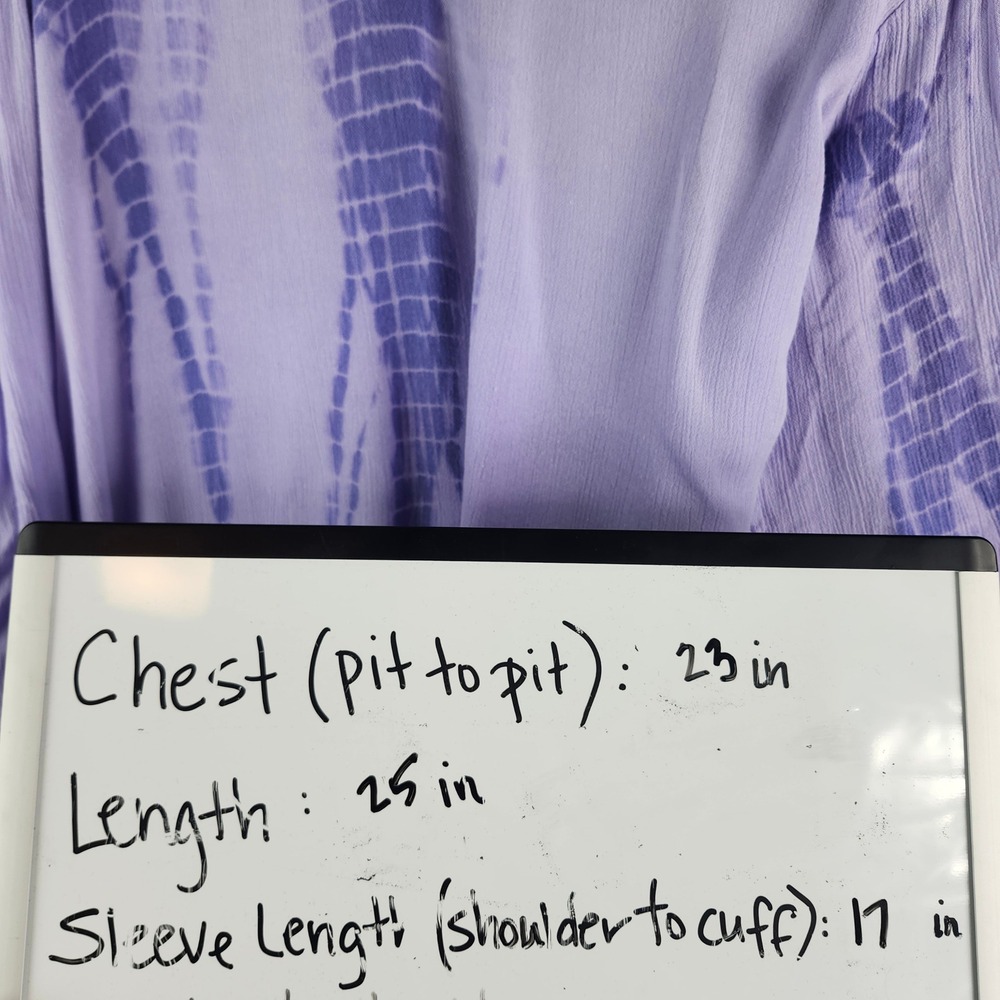 Chest (pit to pit): 23 in
Length: 25 in
Sleeve Length (shoulder to cuff): 17 in